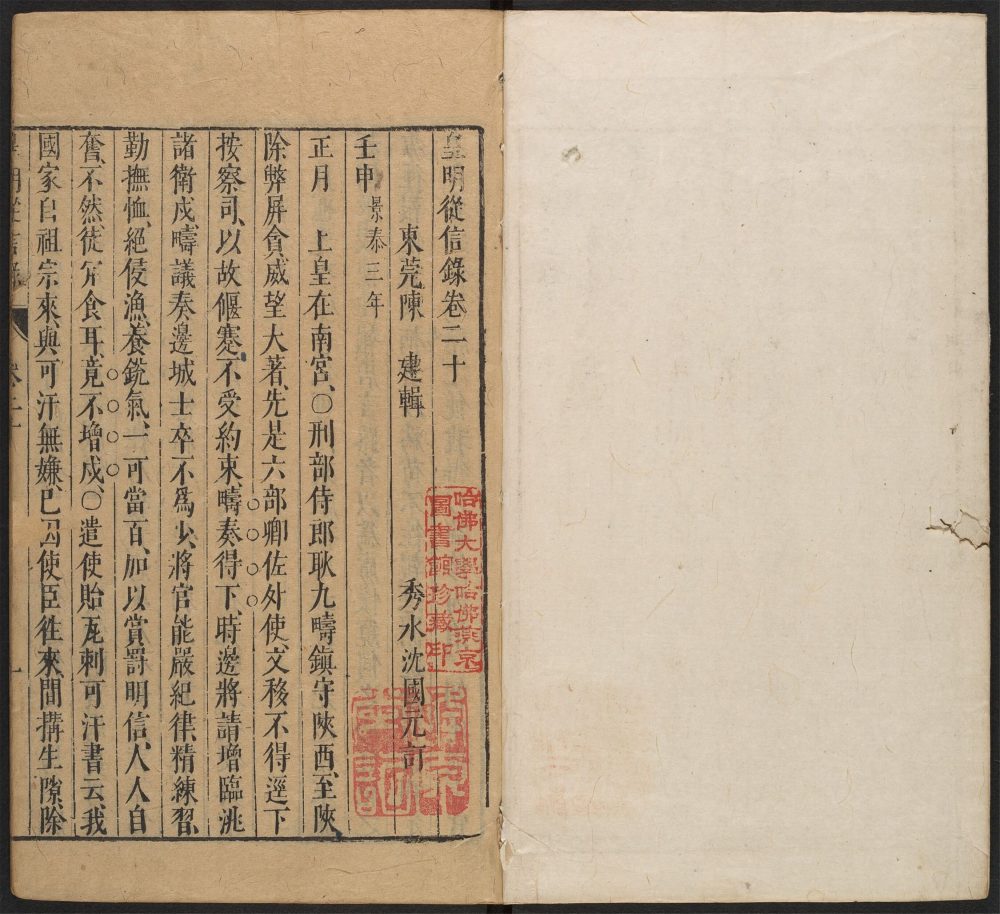 皇明從信錄卷二十
東莞陳 建輯 秀水沈國元訂
壬申景泰三年
正月 上皇在南宮、○刑部侍郎耿九疇鎮守陝西、至陝
除弊屏貪、威望大著、先是六部卿佐外使、文移不得逕下
按察司、以故偃蹇不受約束、疇奏得下、時邊將請增臨洮
諸衛戍、疇議奏邊城士卒不爲少、將官能嚴紀律、精練習、
勤撫恤、絕侵漁、養銳氣、一可當百、加以賞罰明信、人人自
奮、不然、徒冗食耳、竟不增戍、○遣使貽瓦剌可汗書云、我
國家自祖宗來、與可汗無嫌、巳因使臣徃來、間搆生隙、除
皇明從信錄 卷二十 一
哈佛大學哈佛燕京
圖書館珍藏印